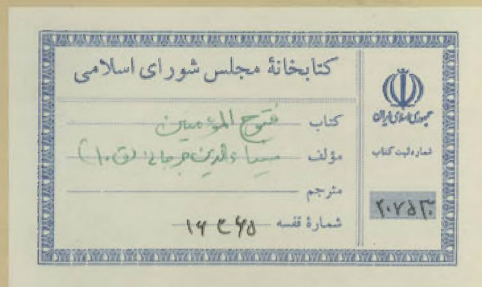 کتابخانهٔ مجلس شورای اسلامی
کتاب فتوح المؤمنین
مؤلف ضیاءالدین جرجانی (ق ۱۰)
مترجم
شمارهٔ قفسه ۱۶۳۶۵
جمهوری اسلامی ایران
شماره ثبت کتاب
۲۰۷۵۳۰